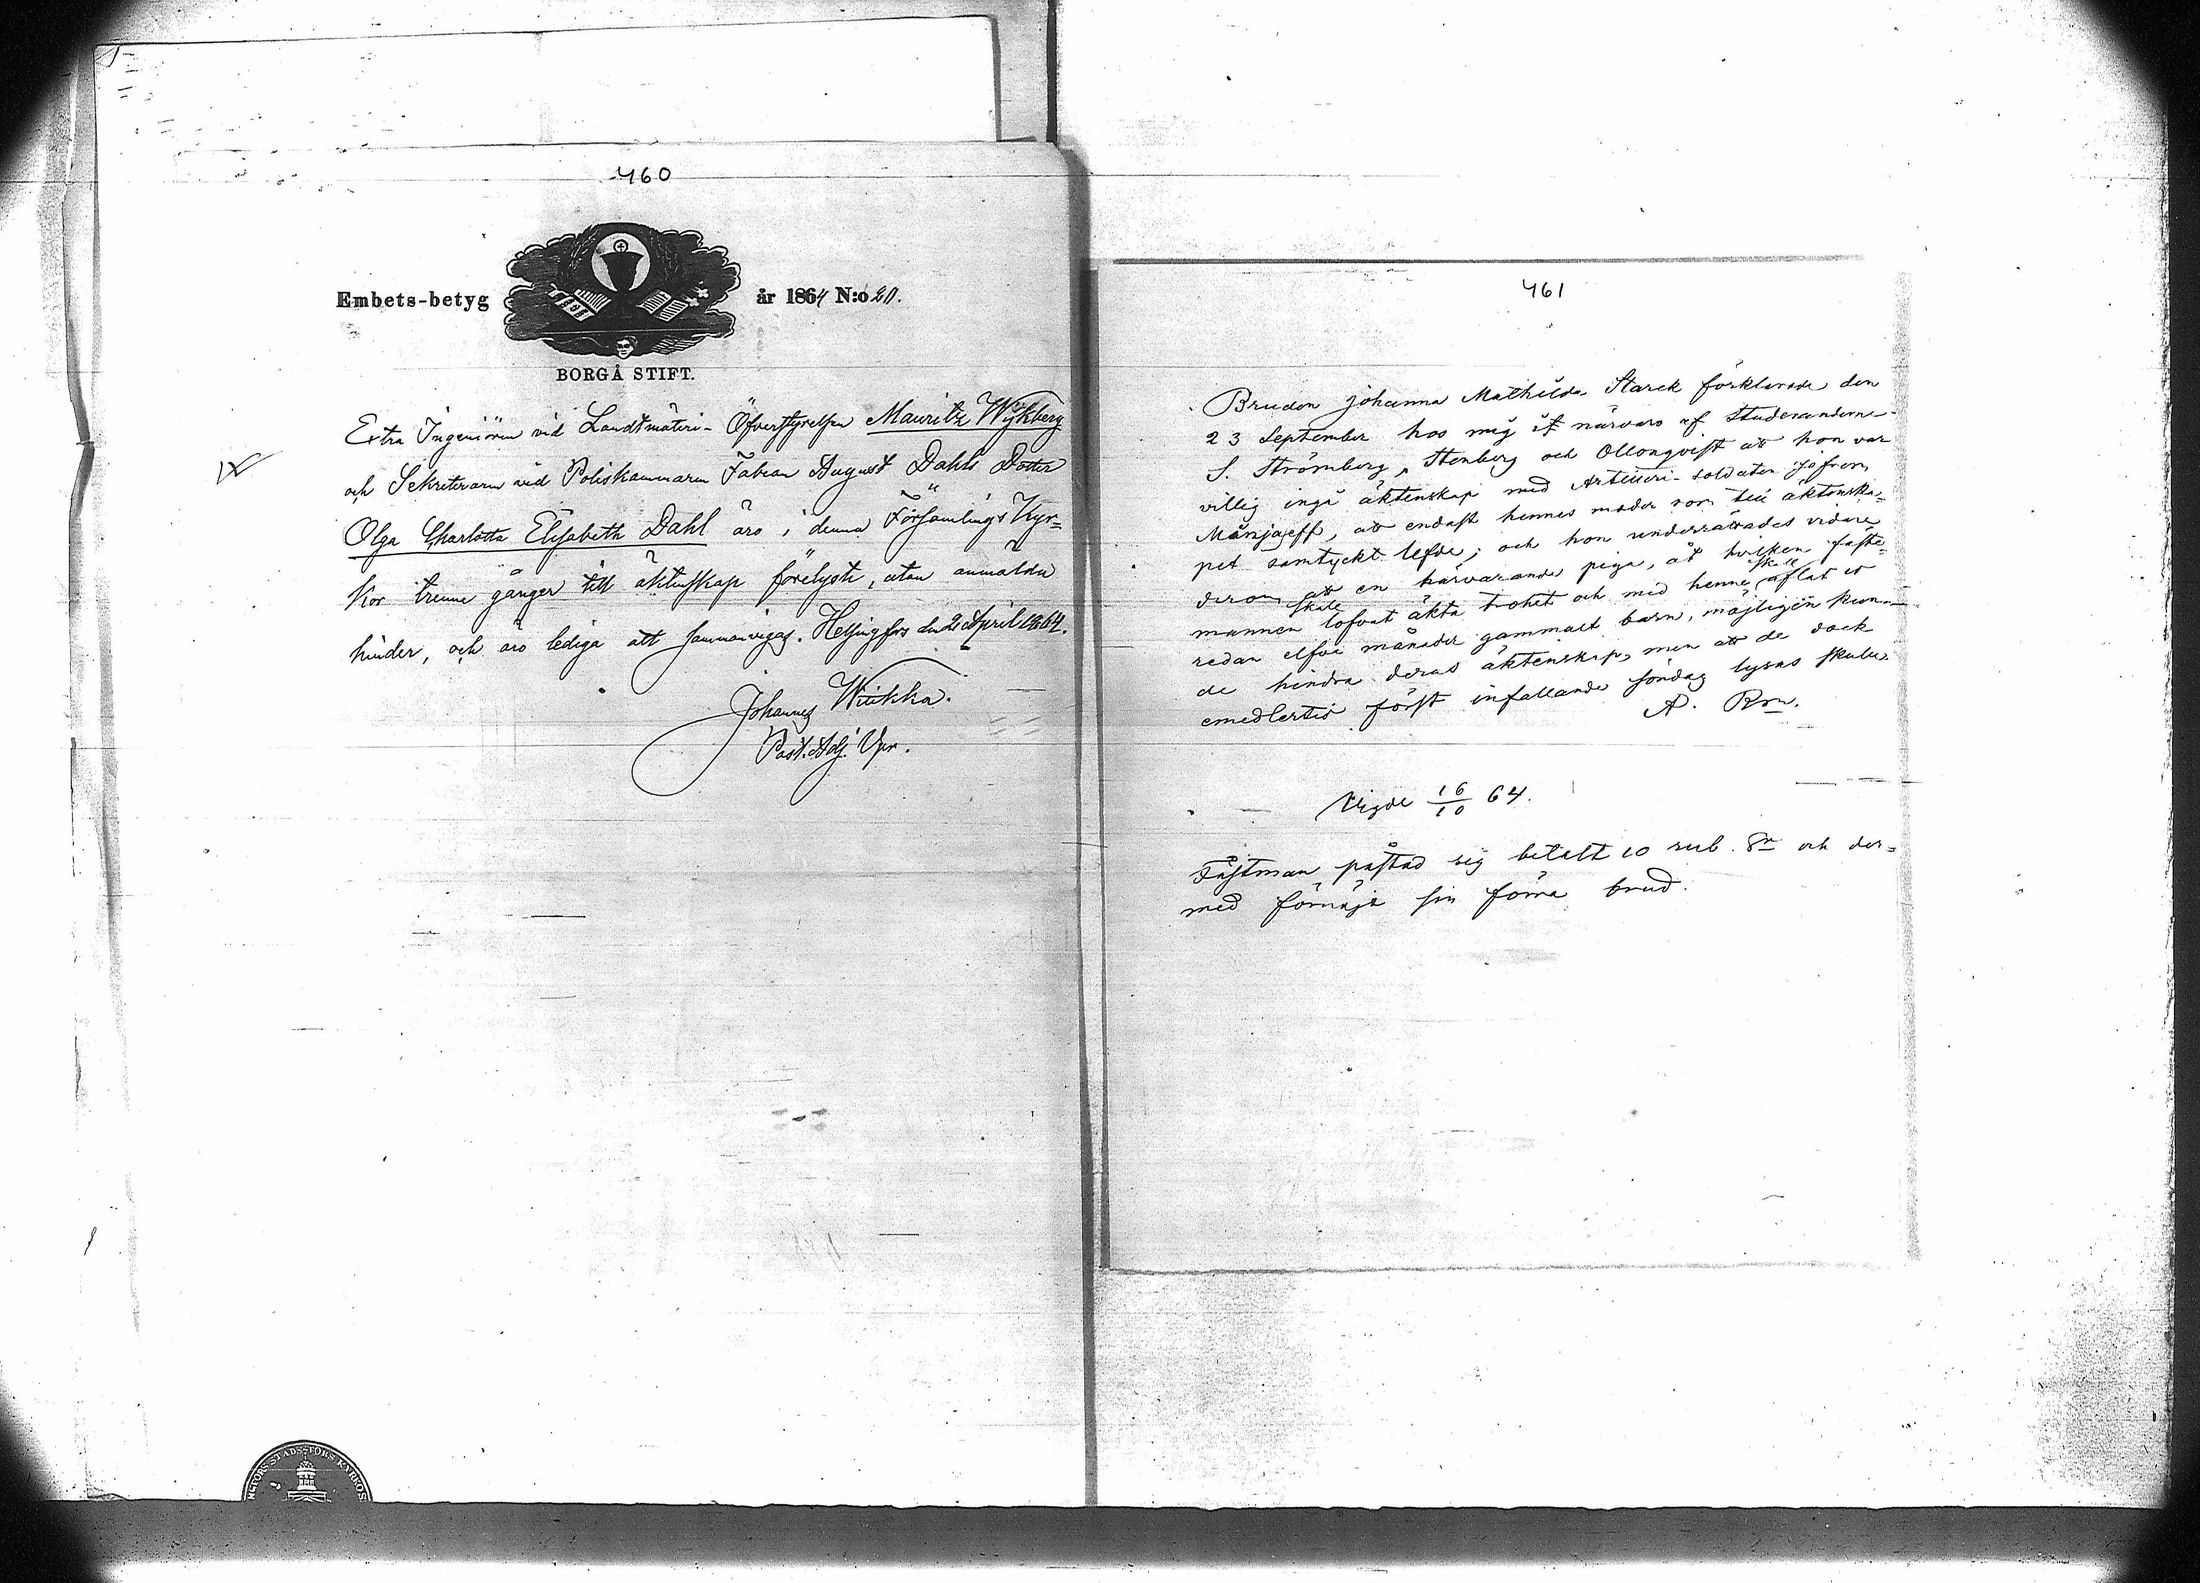 460
Embets-betyg år 1864 N:o 20.
BORGÅ STIFT.
Extra Ingeniören vid Landtmäteri-Öfverstyrelsen Mauritz Wijkberg
och Sekreteraren vid Poliskammaren Fabian August Dahls Dotter
Olga Charlotta Elisabeth Dahl äro i denna Församlings Kyr=
kor trenne gånger till äktenskap förelyste, utan anmäldu
hinder, och äro lediga att sammanvigas. Helsingfors den 2 April 1864.
Johannes Wiikka.
Past. Adj. Vpr.
461
Bruden Johanna Mathilda Starck förklarade den
23 September hos mig i närvaro af Studeranderne
S. Strömberg, Stenberg och Ollonqvist att hon var
villig ingå äktenskap med Artilleri-soldaten Jofrem
Mänjajeff, att endast hennes moder som till äktenska=
pet samtyckt lefde; och hon underrättades vidare
derom att en härvarande piga, åt hvilken fäste=
mannen skall lofvat äkta trohet och med henne skall aflat et
redan elfva månader gammalt barn, möjligen kun=
de hindra deras äktenskap, men att de dock
emedlertid först infallande söndag lysas skulle.
A. Rsn.
Vigde 16/10 64.
Fästman påstod sig betalt 10 rub. Sr och der=
med förnöja sin förra brud.
STADS-FÖRS KYRKOS